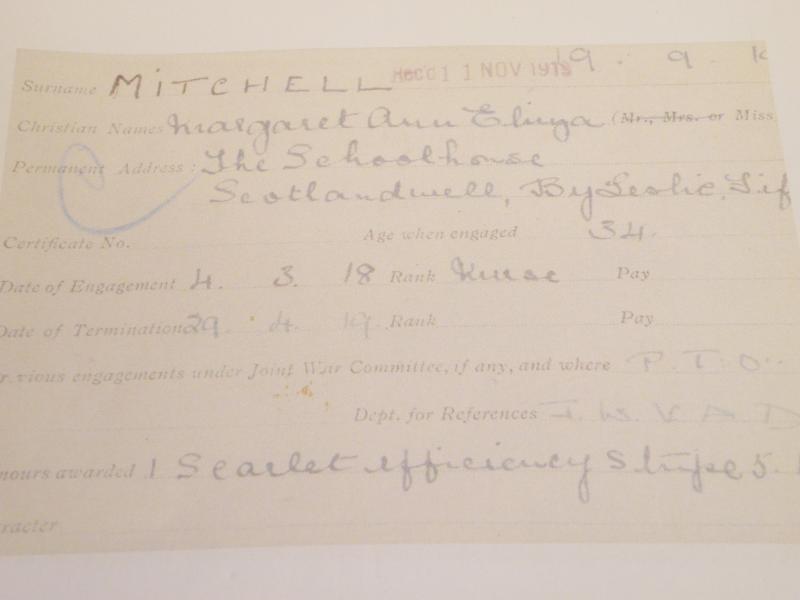 Surname MITCHELL Recd 11 NOV 1919 19. 9.
Christian Names Margaret Ann Eliza (Mr., Mrs. or Miss
Permanent Address: The Schoolhouse
Scotlandwell, By Leslie, Fif
Certificate No. Age when engaged 34.
Date of Engagement 4. 3. 18 Rank Nurse Pay
Date of Termination 29. 4. 19. Rank Pay
r vious engagements under Joint War Committee, if any, and where P.T.O.
Dept. for References J.W.V.A.D
nours awarded 1 Scarlet efficiency Stripe 5.
racter